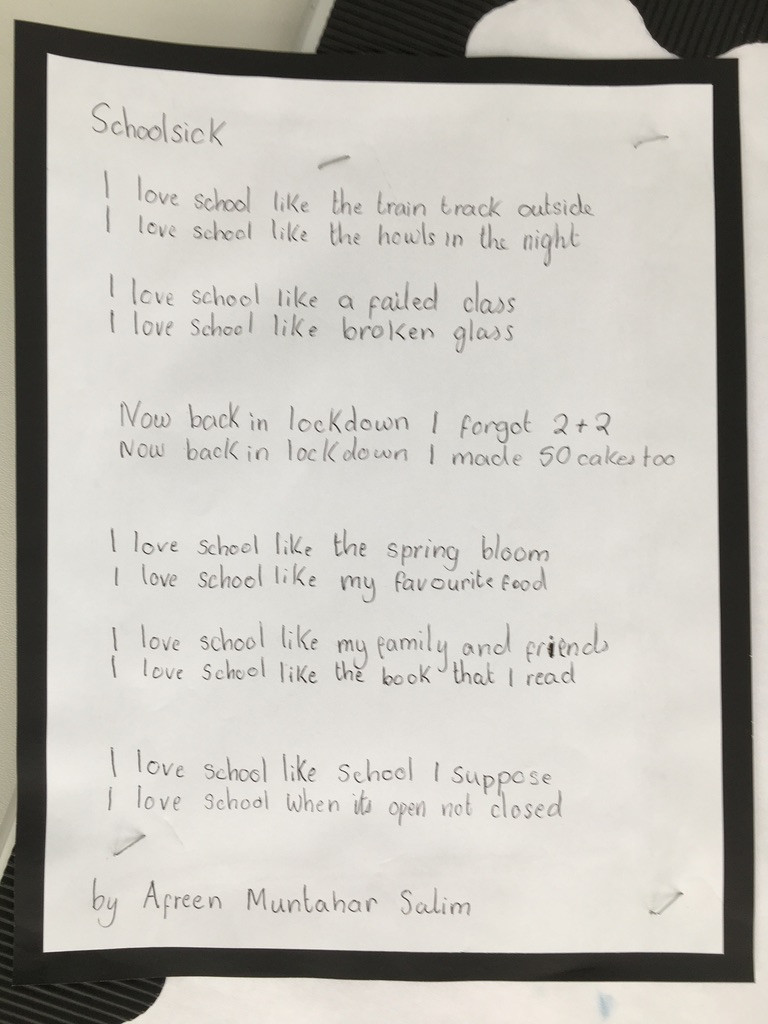 Schoolsick
I love school like the train track outside
I love school like the howls in the night
I love school like a failed class
I love school like broken glass
Now back in lockdown I forgot 2+2
Now back in lockdown I made 50 cakes too
I love school like the spring bloom
I love school like my favourite food
I love school like my family and friends
I love school like the book that I read
I love school like school I suppose
I love school when its open not closed
by Afreen Muntahar Salim